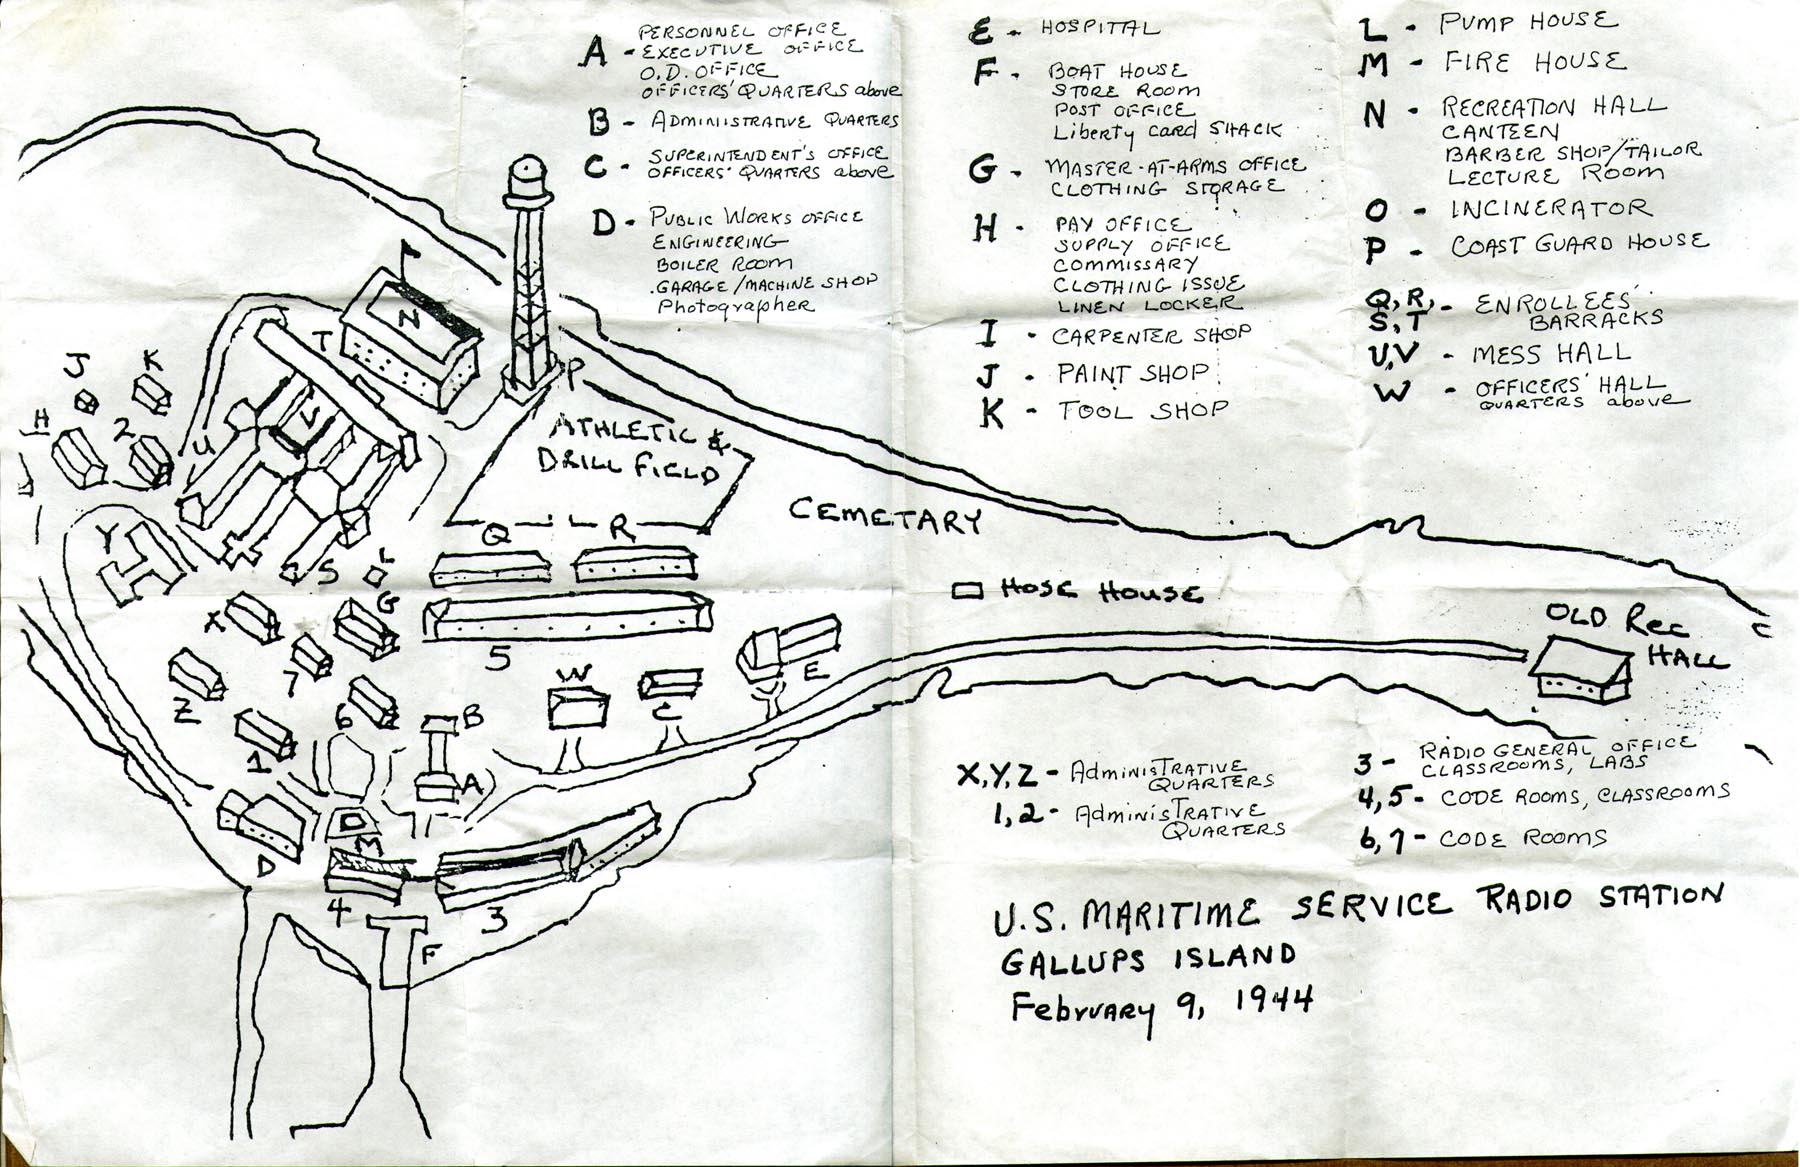 PERSONNEL OFFICE
A - EXECUTIVE OFFICE
O.D. OFFICE
OFFICERS' QUARTERS above
B - ADMINISTRATIVE QUARTERS
C - SUPERINTENDENT'S OFFICE
OFFICERS' QUARTERS above
D - PUBLIC WORKS OFFICE
ENGINEERING
BOILER ROOM
GARAGE/MACHINE SHOP
Photographer
E - HOSPITAL
F - BOAT HOUSE
STORE ROOM
POST OFFICE
Liberty card SHACK
G - MASTER-AT-ARMS OFFICE
CLOTHING STORAGE
H - PAY OFFICE
SUPPLY OFFICE
COMMISSARY
CLOTHING ISSUE
LINEN LOCKER
I - CARPENTER SHOP
J - PAINT SHOP
K - TOOL SHOP
L - PUMP HOUSE
M - FIRE HOUSE
N - RECREATION HALL
CANTEEN
BARBER SHOP/TAILOR
LECTURE ROOM
O - INCINERATOR
P - COAST GUARD HOUSE
Q, R, - ENROLLEES'
S, T BARRACKS
U, V - MESS HALL
W - OFFICERS' HALL
QUARTERS above
N
T
P
K
J
H
2
V
U
I
ATHLETIC &
DRILL FIELD
CEMETARY
Y
Q
R
L
S
G
HOSE HOUSE
OLD Rec
HALL
X
5
7
E
W
C
Z
6
B
1
A
D
M
4
3
F
X, Y, Z - ADMINISTRATIVE
QUARTERS
1, 2 - ADMINISTRATIVE
QUARTERS
3 - RADIO GENERAL OFFICE
CLASSROOMS, LABS
4, 5 - CODE ROOMS, CLASSROOMS
6, 7 - CODE ROOMS
U.S. MARITIME SERVICE RADIO STATION
GALLUPS ISLAND
February 9, 1944